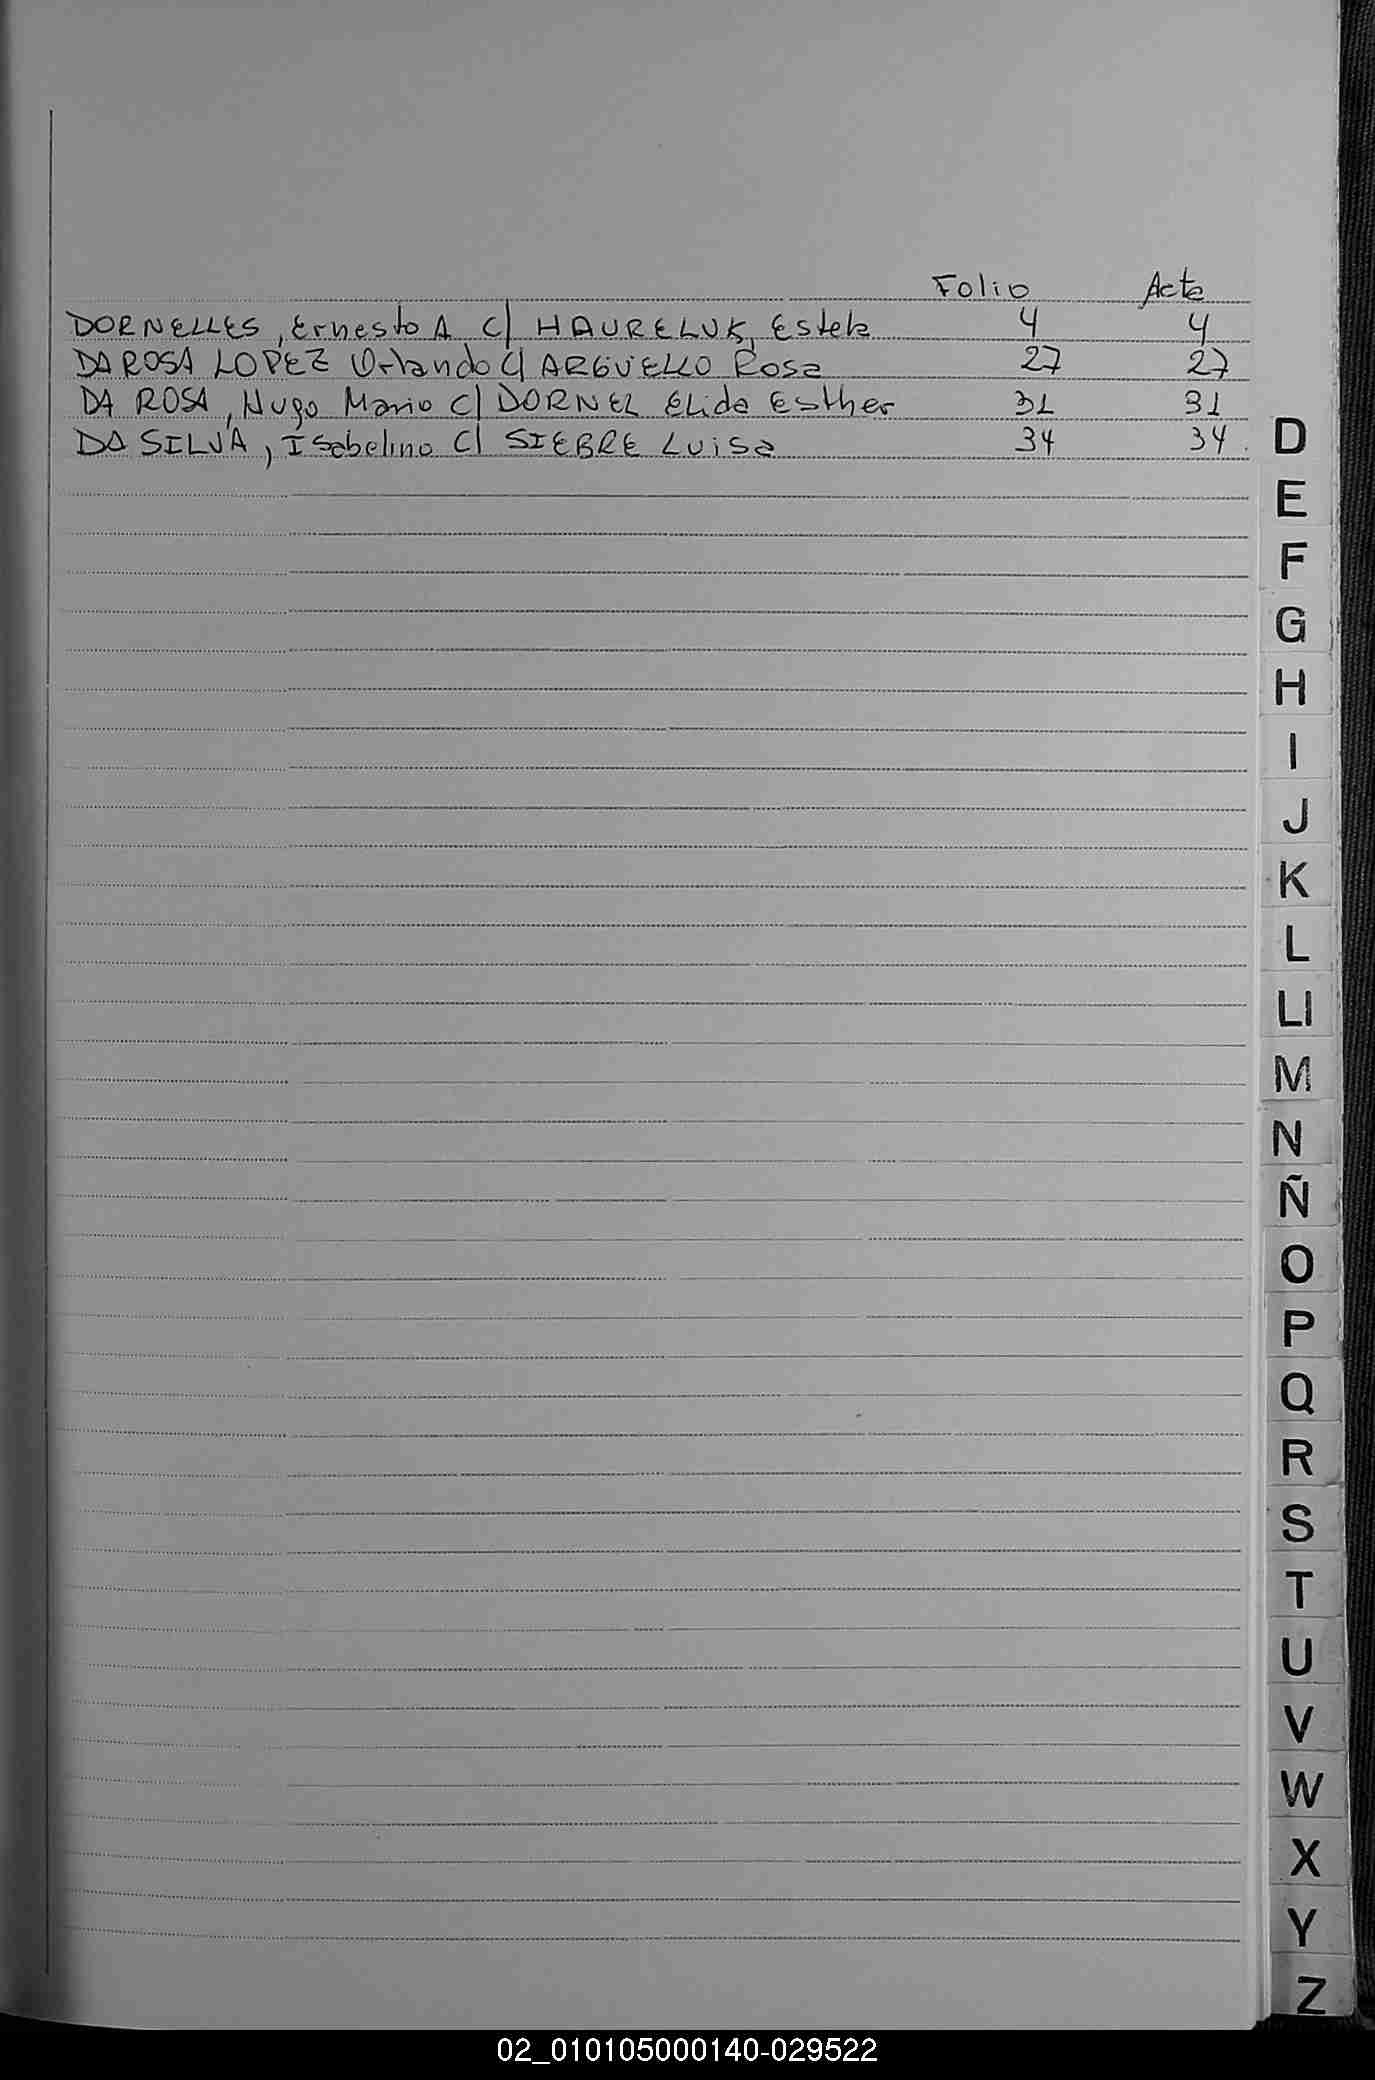 Folio Acta
DORNELLES, Ernesto A C/ HAURELUK, Estela 4 4
DA ROSA LOPEZ Orlando C/ ARGÜELLO Rosa 27 27
DA ROSA, Hugo Mario C/ DORNEL Elida Esther 31 31
DA SILVA, Isabelino C/ SIEBRE Luisa 34 34
D
E
F
G
H
I
J
K
L
Ll
M
N
Ñ
O
P
Q
R
S
T
U
V
W
X
Y
Z
02_010105000140-029522